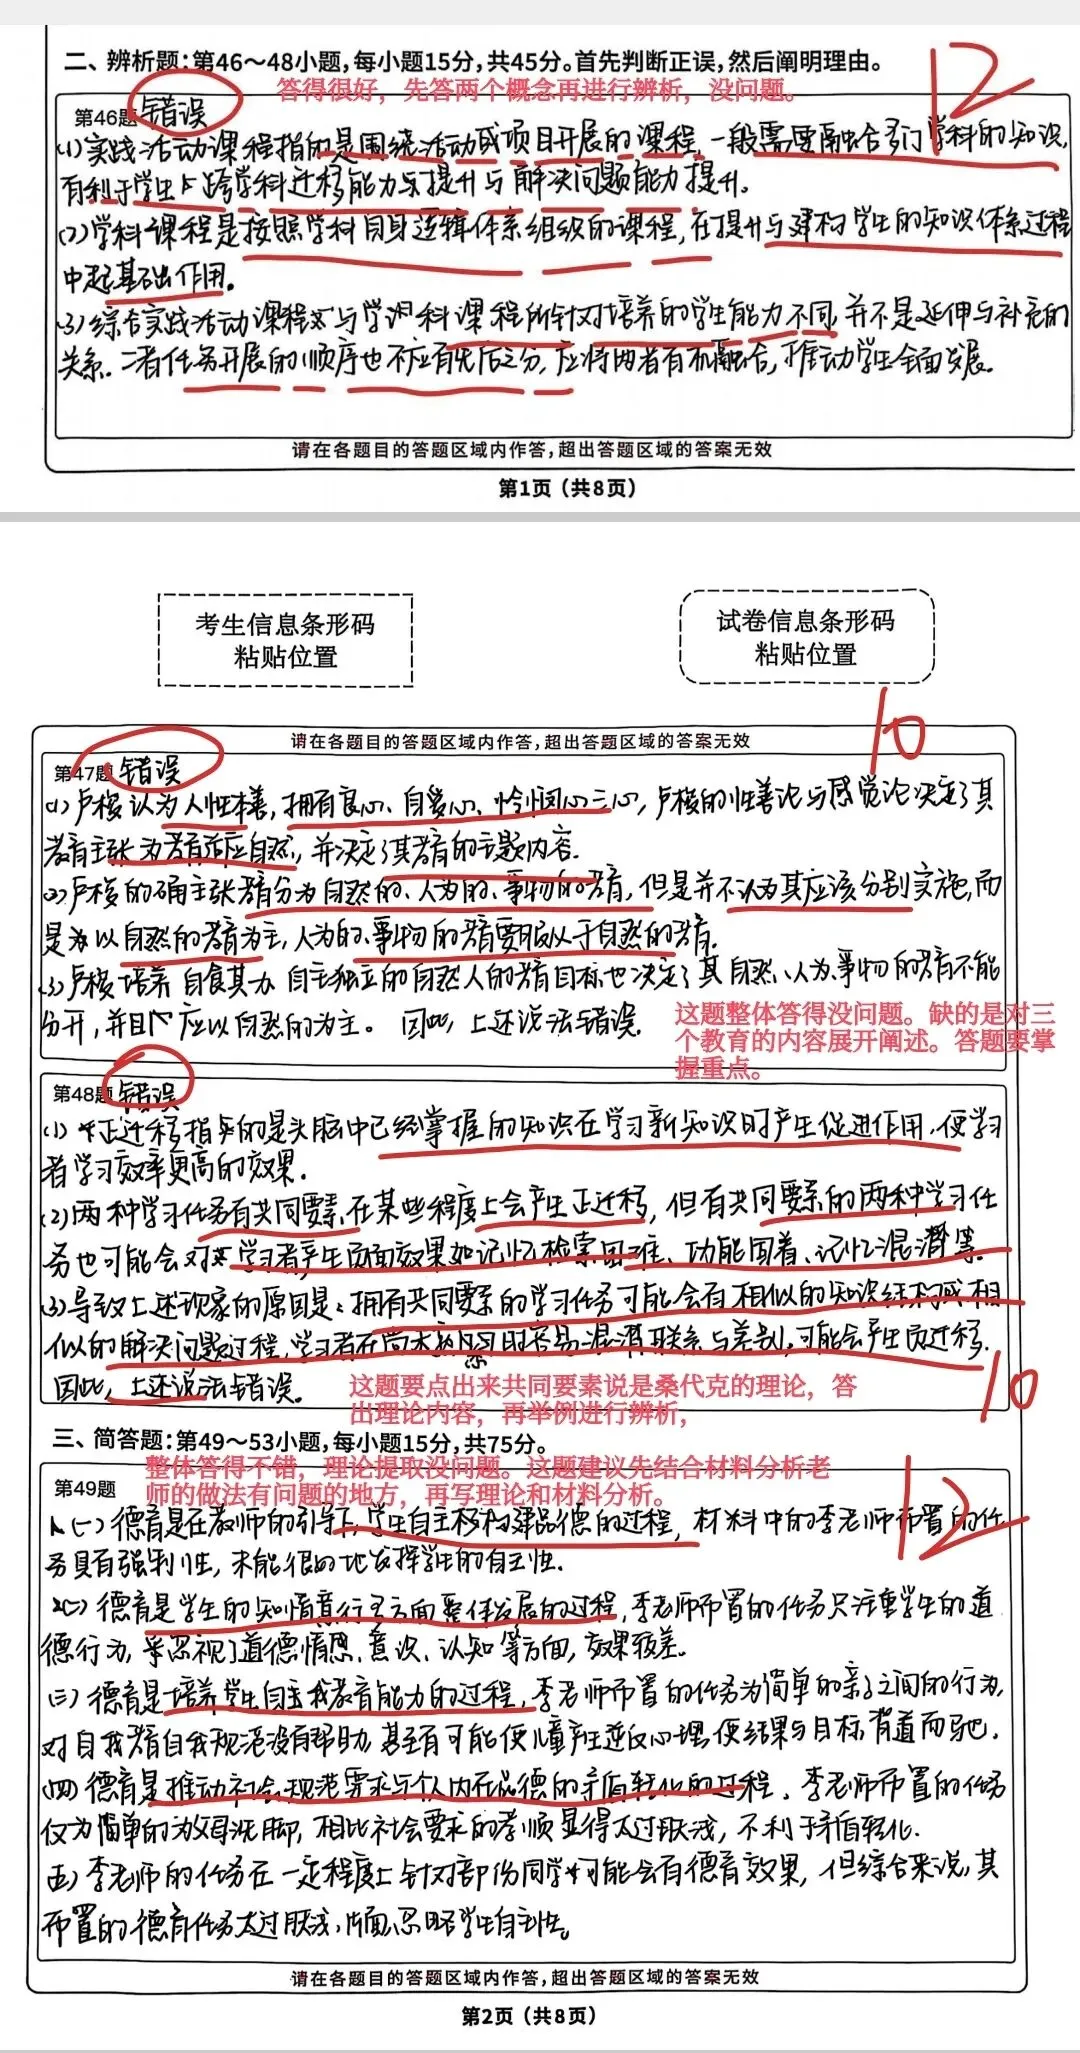 二、辨析题:第46～48小题,每小题15分,共45分。首先判断正误,然后阐明理由。
12
答得很好,先答两个概念再进行辨析,没问题。
第46题 错误
(1)实践活动课程指的是围绕活动或项目开展的课程,一般需要融合多门学科的知识,
有利于学生跨学科迁移能力提升与解决问题能力提升。
(2)学科课程是按照学科自身逻辑体系组织的课程,在提升与建构学生的知识体系过程
中起基础作用。
(3)综合实践活动课程与学科课程所针对培养的学生能力不同,并不是延伸与补充的
关系.二者任务开展的顺序也不应有先后之分,应将两者有机融合,推动学生全面发展.
请在各题目的答题区域内作答,超出答题区域的答案无效
第1页(共8页)
考生信息条形码
粘贴位置
试卷信息条形码
粘贴位置
10
请在各题目的答题区域内作答,超出答题区域的答案无效
第47题 错误
(1)卢梭认为人性本善,拥有良心、自爱心、怜悯心三心,卢梭的性善论与感觉论决定了其
教育主张为教育适应自然,并决定了其教育的主题内容.
(2)卢梭的确主张教育分为自然的、人为的、事物的教育,但是并不认为其应该分别实施,而
是以自然的教育为主,人为的、事物的教育要服从于自然的教育.
(3)卢梭培养自食其力、自主独立的自然人的教育目标也决定了其自然、人为、事物的教育不能
分开,并且应以自然的为主。因此,上述说法错误.
这题整体答得没问题。缺的是对三
个教育的内容展开阐述。答题要掌
握重点。
第48题 错误
(1)正迁移指的是头脑中已经掌握的知识在学习新知识时产生促进作用,使学习
者学习效率更高的效果.
(2)两种学习任务有共同要素,在某些程度上会产生正迁移,但有共同要素的两种学习任
务也可能会对学习者产生负面效果如记忆检索困难、功能固着、记忆混淆等.
(3)导致上述现象的原因是:拥有共同要素的学习任务可能会有相似的知识结构或相
似的解决问题过程,学习者在学习时容易混淆联系与差别,可能会产生负迁移.
因此,上述说法错误。
这题要点出来共同要素说是桑代克的理论,答
出理论内容,再举例进行辨析,
10
三、简答题:第49～53小题,每小题15分,共75分。
整体答得不错,理论提取没问题。这题建议先结合材料分析老
师的做法有问题的地方,再写理论和材料分析。
12
第49题
(一)德育是在教师的引导下,学生自主建构品德的过程,材料中的李老师布置的任
务具有强制性,未能很好地发挥学生的自主性.
(二)德育是学生的知情意行多方面整体发展的过程,李老师布置的任务只注重学生的道
德行为,忽视了道德情感、意识、认知等方面,效果较差.
(三)德育是培养学生自主我教育能力的过程,李老师布置的任务为简单的亲子之间的行为,
对自我教育自我规范没有帮助,甚至有可能使儿童产生逆反心理,使结果与目标背道而驰.
(四)德育是推动社会规范需求与个人内在品德的矛盾转化的过程.李老师布置的任务
仅为简单的为父母洗脚,相比社会要求的孝顺显得太过肤浅,不利于矛盾转化.
(五)李老师的任务在一定程度上针对部份同学可能会有德育效果,但综合来说,其
布置的德育任务太过肤浅,片面,忽略学生自主性。
请在各题目的答题区域内作答,超出答题区域的答案无效
第2页(共8页)